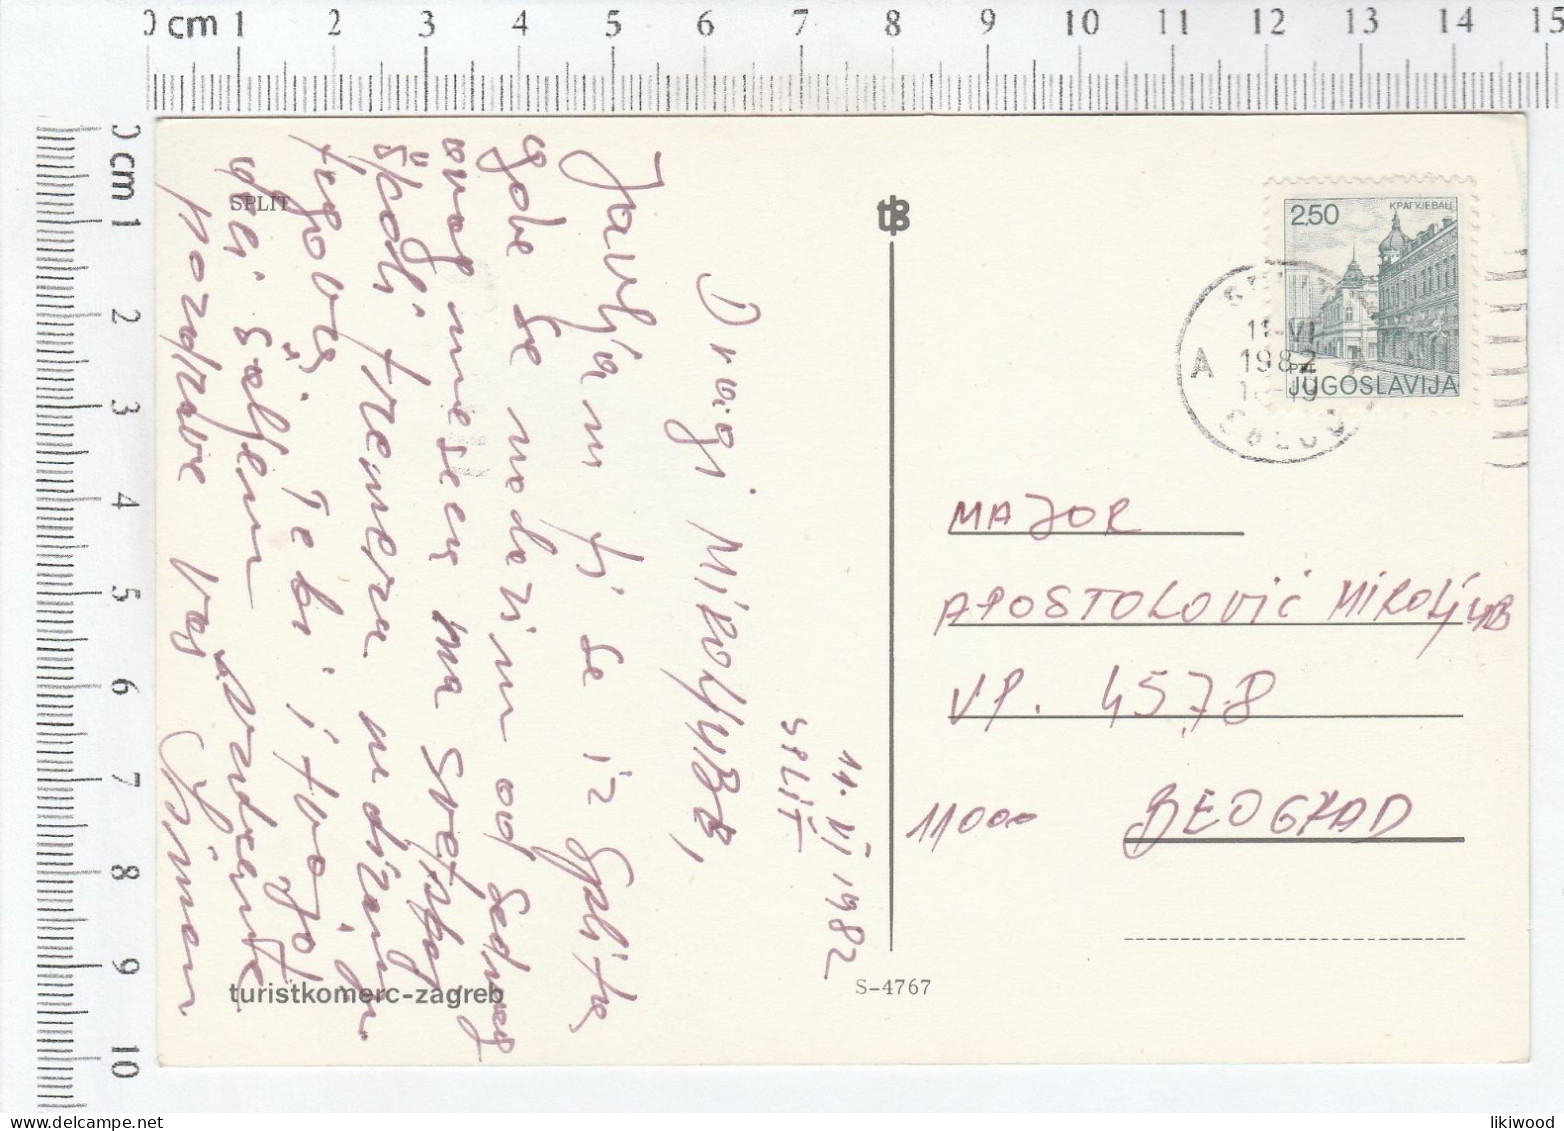 0 cm 1 2 3 4 5 6 7 8 9 10 11 12 13 14 15
0 cm 1 2 3 4 5 6 7 8 9 10
SPLIT
11. VI 1982
SPLIT
Dragi MIROLJUBE,
Javljam ti se iz Splita,
gde se nalazim od sedmog
ovog meseca na svetskoj
školi trenera u dizanju
tegova. Tebi i tvojoj
deci šaljem
pozdrave Vaš
turistkomerc-zagreb
S-4767
tB
2.50
КРАГУЈЕВАЦ
PTT
JUGOSLAVIJA
SPLIT
11-VI
1982
A
MAJOR
APOSTOLOVIĆ MIROLJUB
VP. 4578
11000 BEOGRAD
likiwood